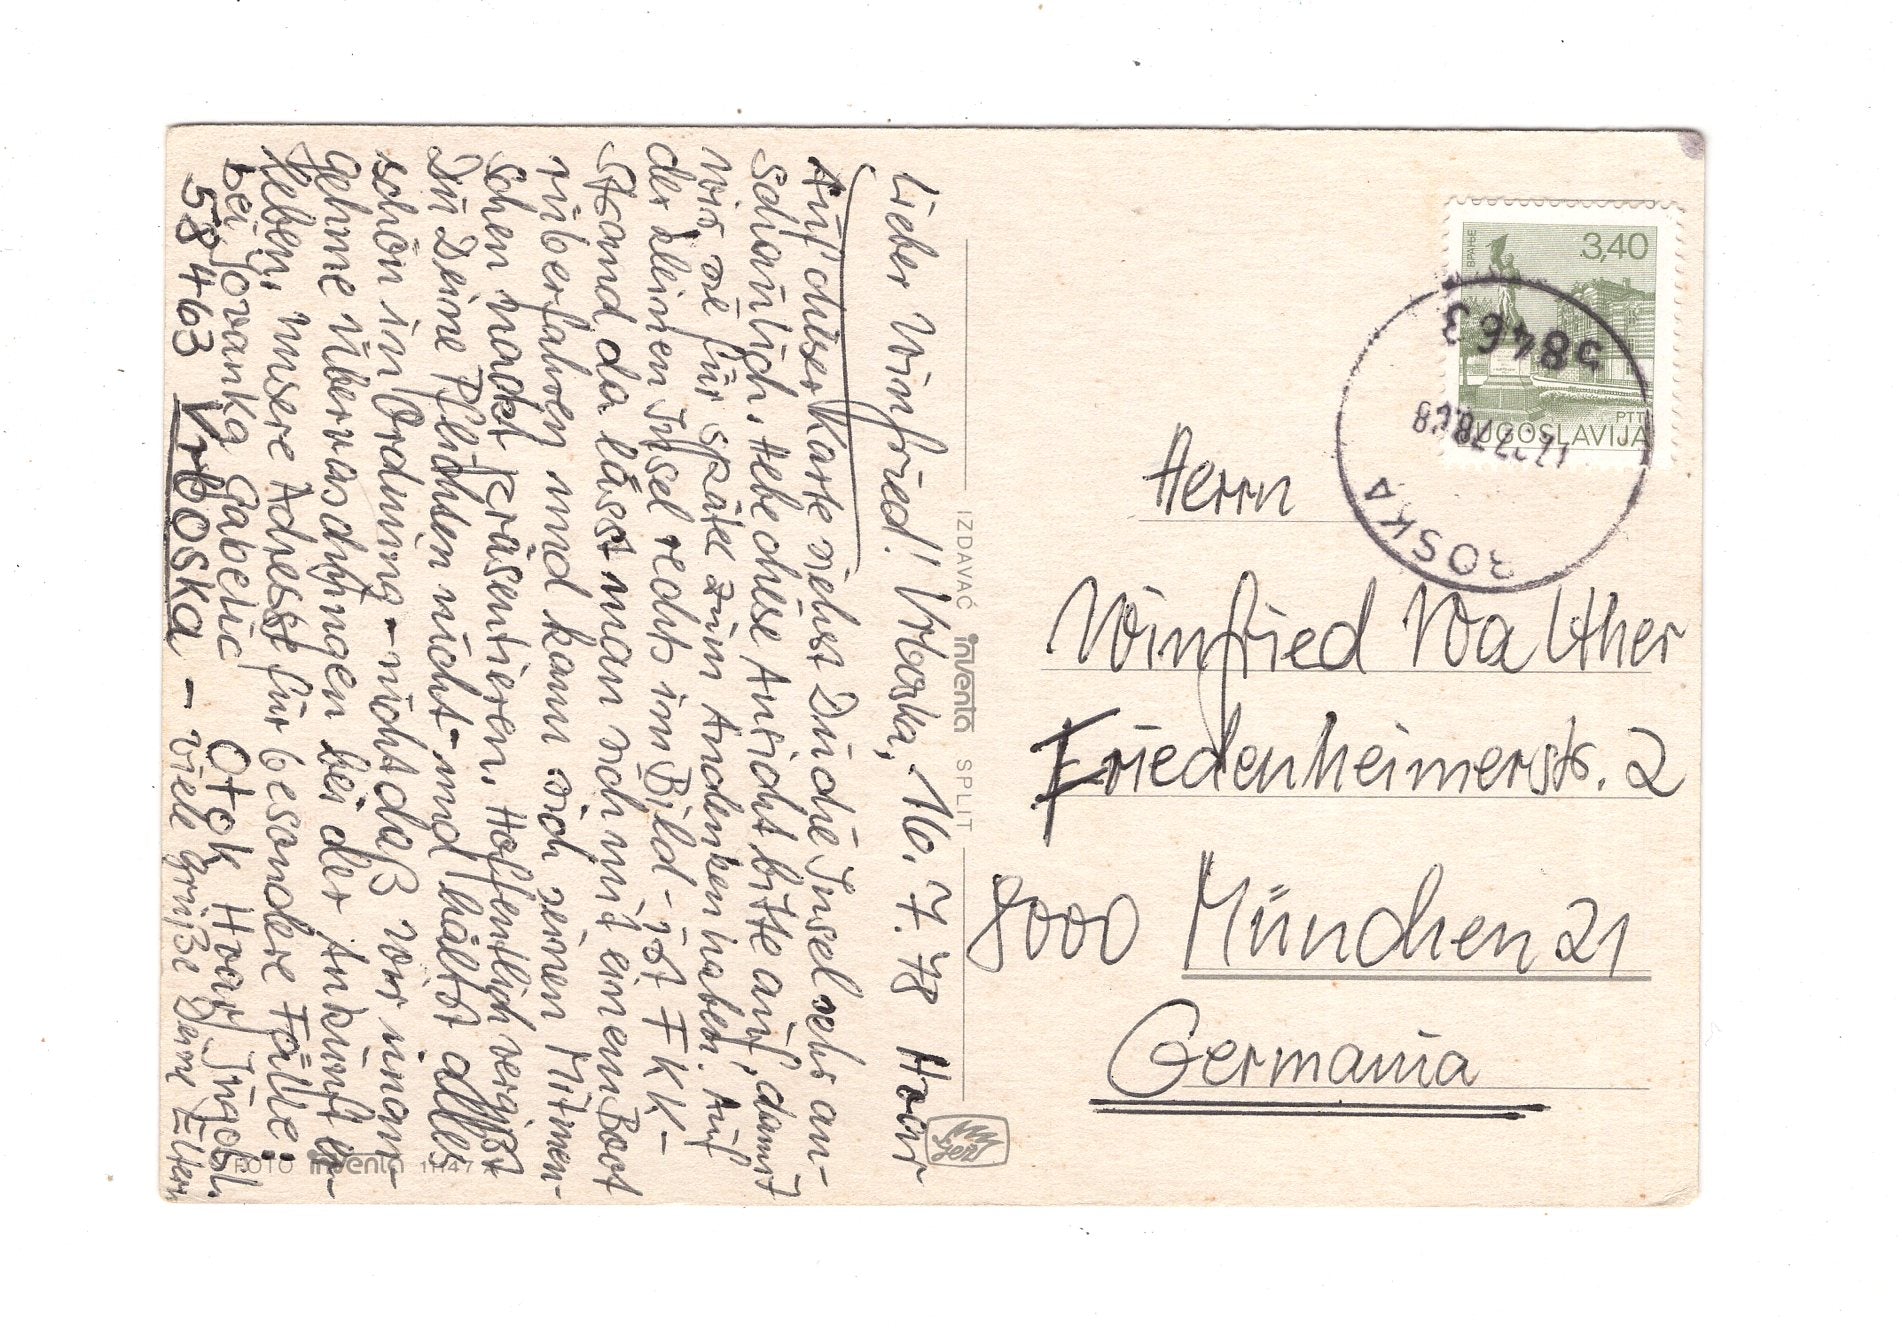 Lieber Winfried! Vrboska, 16. 7. 78 Hvar
Auf dieser Karte siehst Du die Insel sehr an-
schaulich. Hebe diese Ansicht bitte auf, damit
wir sie für später zum Andenken haben. Auf
der kleinen Insel rechts im Bild - ist FKK-
Strand da lässt man sich mit einem Boot
rüberfahren und kann sich seinen Mitmen-
schen nackt präsentieren. Hoffentlich vergißt
Du Deine Pflichten nicht - und hältst alles
schön in Ordnung - nicht daß wir unan-
gehme Überraschungen bei der Ankunft er-
leben, unsere Adresse für besondere Fälle:
bei Jovanka Gabelic Otok Hvar Jugosl.
58 463 Vrboska - viele Grüße Deine Eltern
FOTO inventa 1147
IZDAVAČ inventa SPLIT
3,40
ВРАЊЕ
PTT
JUGOSLAVIJA
58463
BOSKA
Herrn
Winfried Walther
Friedenheimerstr. 2
8000 München 21
Germania